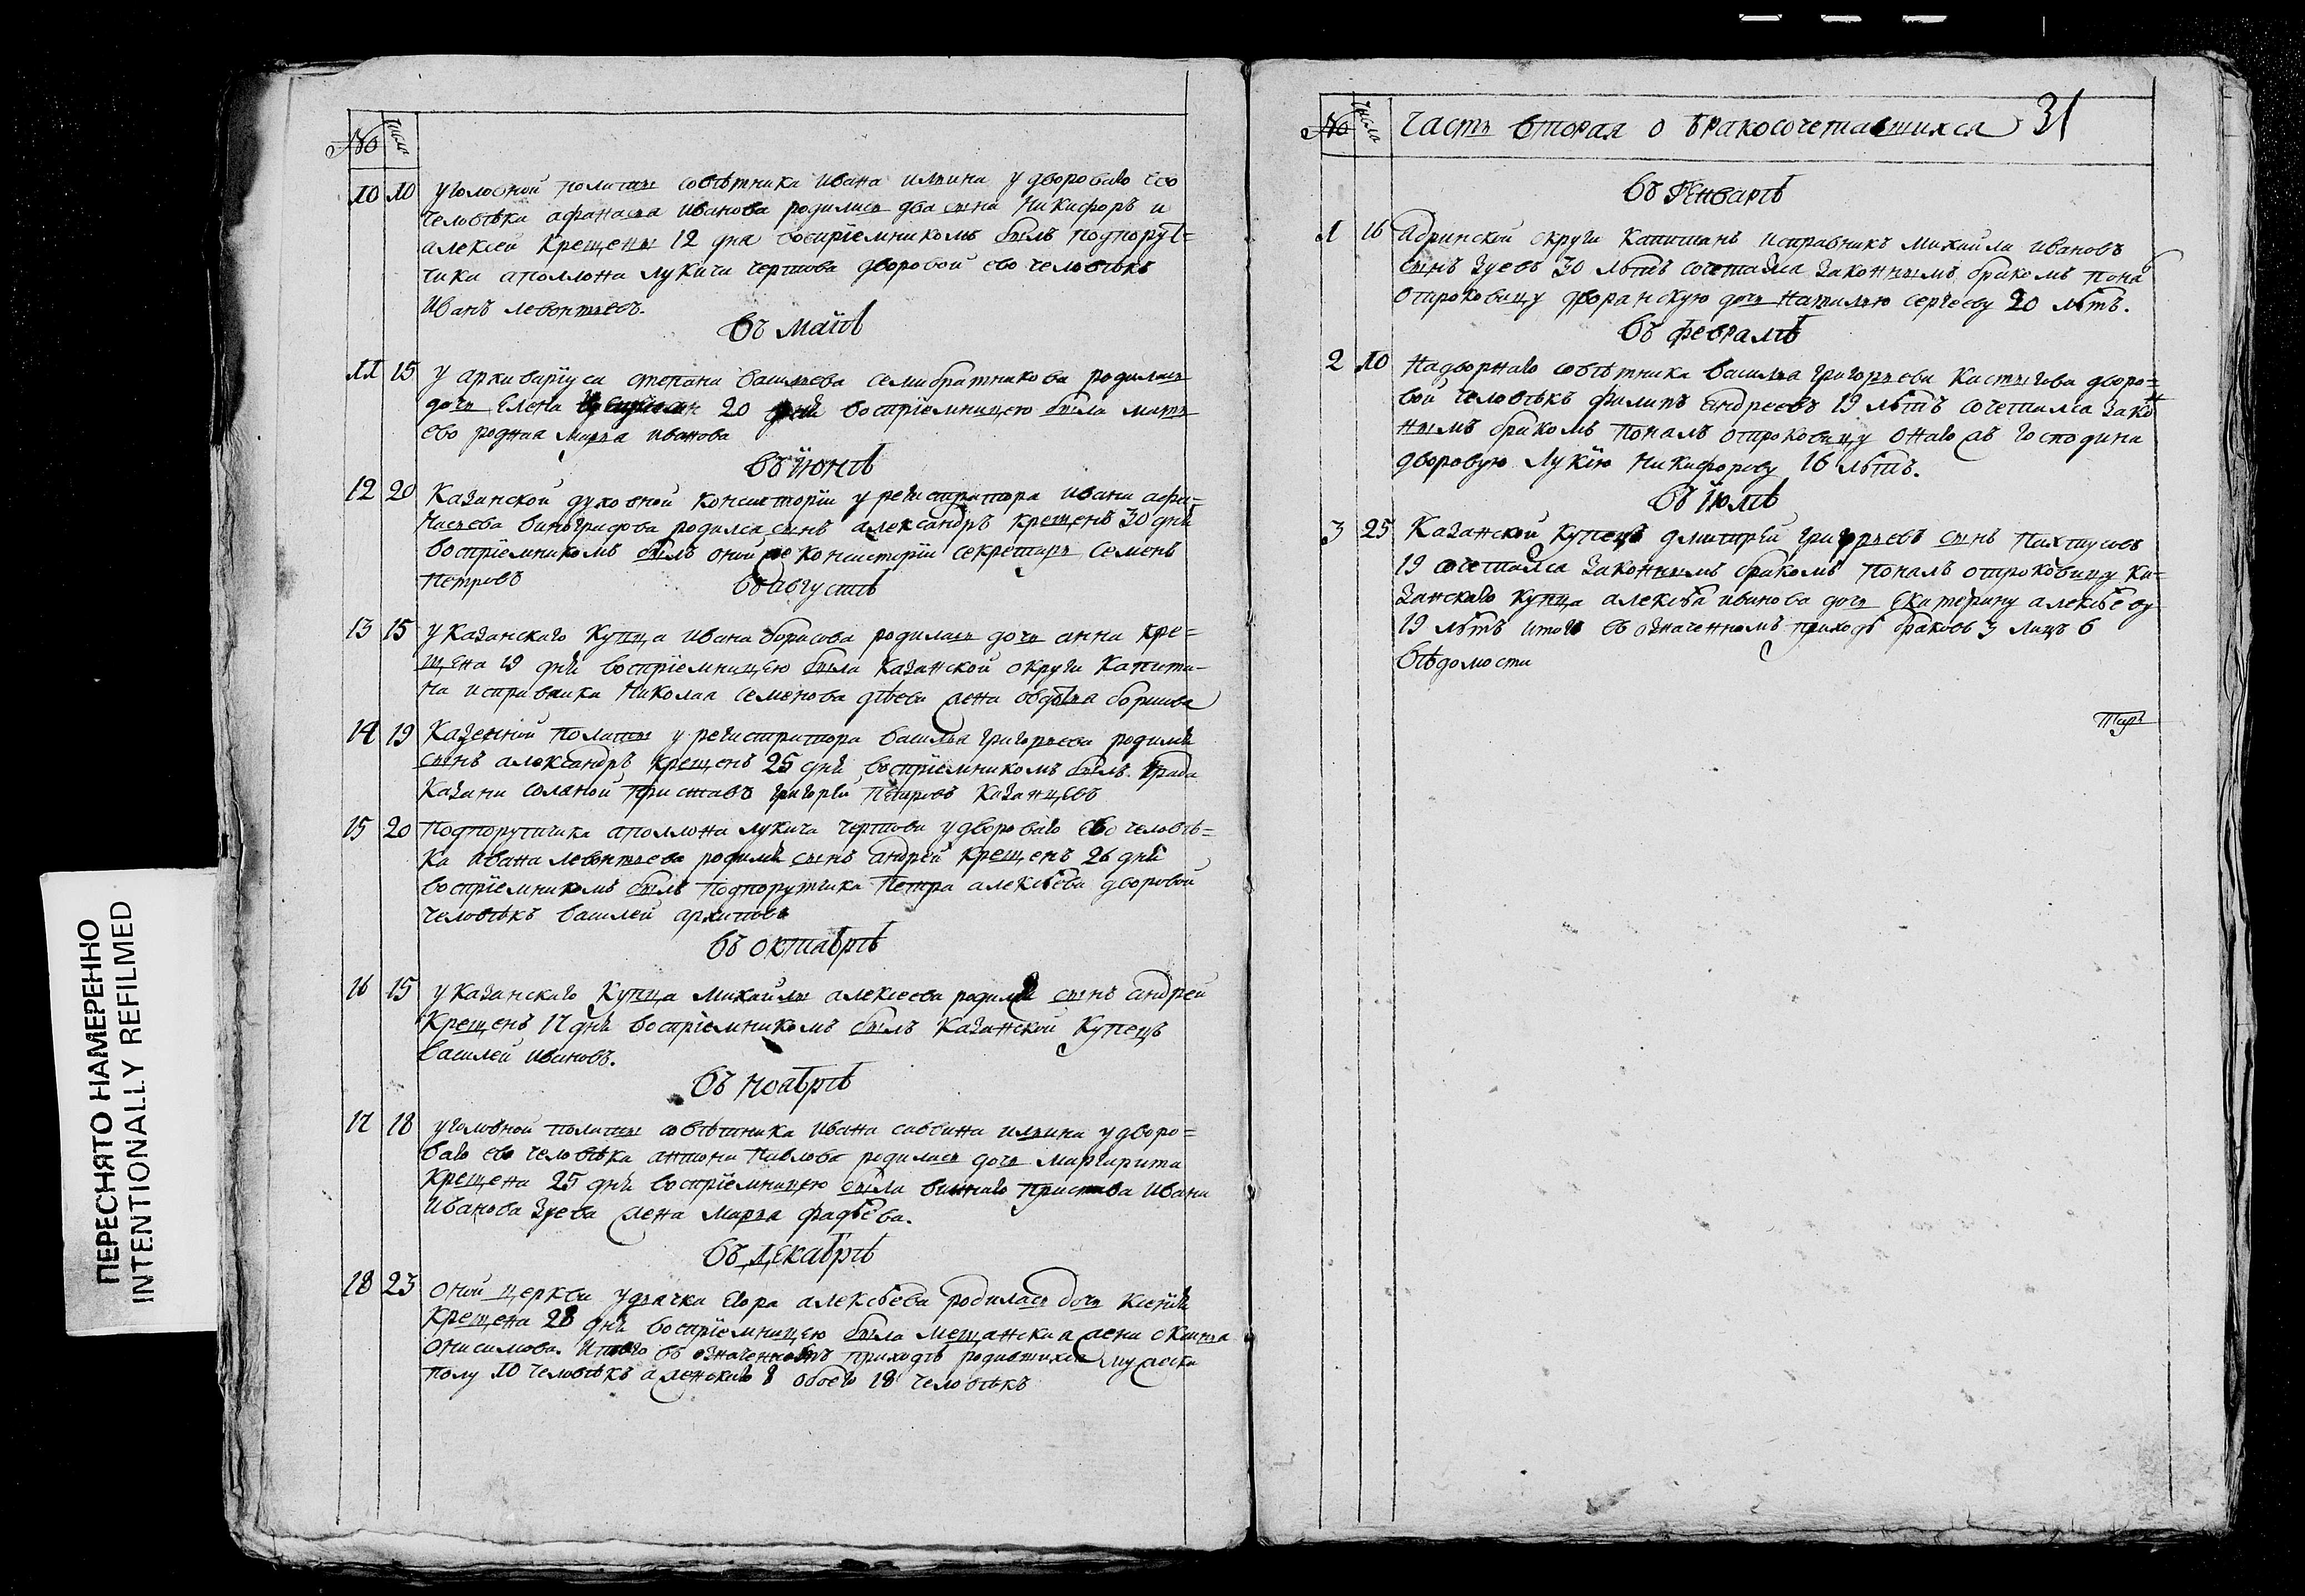 № числа
10 10 уголовной полаты совѣтника ивана ильина у двороваго ево
человѣка афанасья иванова родились два сына Никифоръ и
алексей крещены 12 дня воспріемникомъ былъ подпору-
чика аполлона лукича чертова дворовой ево человѣкъ
иванъ левонтьевъ.
въ маіѣ
11 15 у архиваріуса степана васильева семибратникова родилась
дочь Елена 20 дня воспріемницею была мать
ево родная марья иванова
въ іюнѣ
12 20 Казанской духовной консисторіи у регистратора ивана афа-
насьева виноградова родился сынъ александръ крещенъ 30 дня
воспріемникомъ былъ оной же консисторіи секретарь Семенъ
петровъ
въ августѣ
13 15 у казанскаго купца ивана борисова родилась дочь анна кре-
щена 19 дня воспріемницею была казанской округи капита-
на исправника Николая семенова жена авдотья борисова
14 19 Казенной полаты у регистратора василья григорьева родился
сынъ александръ крещенъ 25 дня воспріемникомъ былъ града
казани соляной приставъ григорей петровъ казанцевъ
15 20 подпорутчика аполлона лукича чертова у двороваго ево человѣ-
ка ивана левонтьева родился сынъ андрей крещенъ 26 дня
воспріемникомъ былъ подпорутчика петра алексѣева дворовой
человѣкъ василей архиповъ
въ октябрѣ
16 15 у казанскаго купца михайлы алексеева родился сынъ андрей
крещенъ 17 дня воспріемникомъ былъ казанской купецъ
василей ивановъ.
въ ноябрѣ
17 18 уголовной полаты совѣтника ивана саввина ильина у дворо-
ваго ево человѣка антона павлова родилась дочь маргарита
крещена 25 дня воспріемницею была виннаго пристава ивана
иванова зуева жена марья фадѣева.
въ декабрѣ
18 23 оной церкви у дьячка Егора алексѣева родилась дочь ксенія
крещена 28 дня воспріемницею была мещанская жена
онисимова. Итого въ означенномъ приходѣ родившихся мужеска
полу 10 человѣкъ а женскаго 8 обоего 18 человѣкъ
№ числа часть вторая о бракосочетавшихся 31
въ Генварѣ
1 16 ядринской округи капитанъ исправникъ михайла ивановъ
сынъ зуевъ 30 лѣтъ сочетался законнымъ бракомъ поня
отроковицу дворянскую дочь наталью сергееву 20 лѣтъ.
въ февралѣ
2 10 Надворнаго совѣтника василья григорьева дворо-
вой человѣкъ филипъ андреевъ 19 лѣтъ сочетался закон
нымъ бракомъ понялъ отроковицу онаго жъ господина
дворовую лукію никифорову 16 лѣтъ.
въ іюлѣ
3 25 Казанской купецъ дмитрей григорьевъ сынъ пахтусовъ
19 сочетался законнымъ бракомъ понялъ отроковицу ка-
занскаго купца алексѣя иванова дочь екатерину алексѣеву
19 лѣтъ итого въ означенномъ приходѣ браковъ 3 лицъ 6
вѣдомости
ПЕРЕСНЯТО НАМЕРЕННО
INTENTIONALLY REFILMED